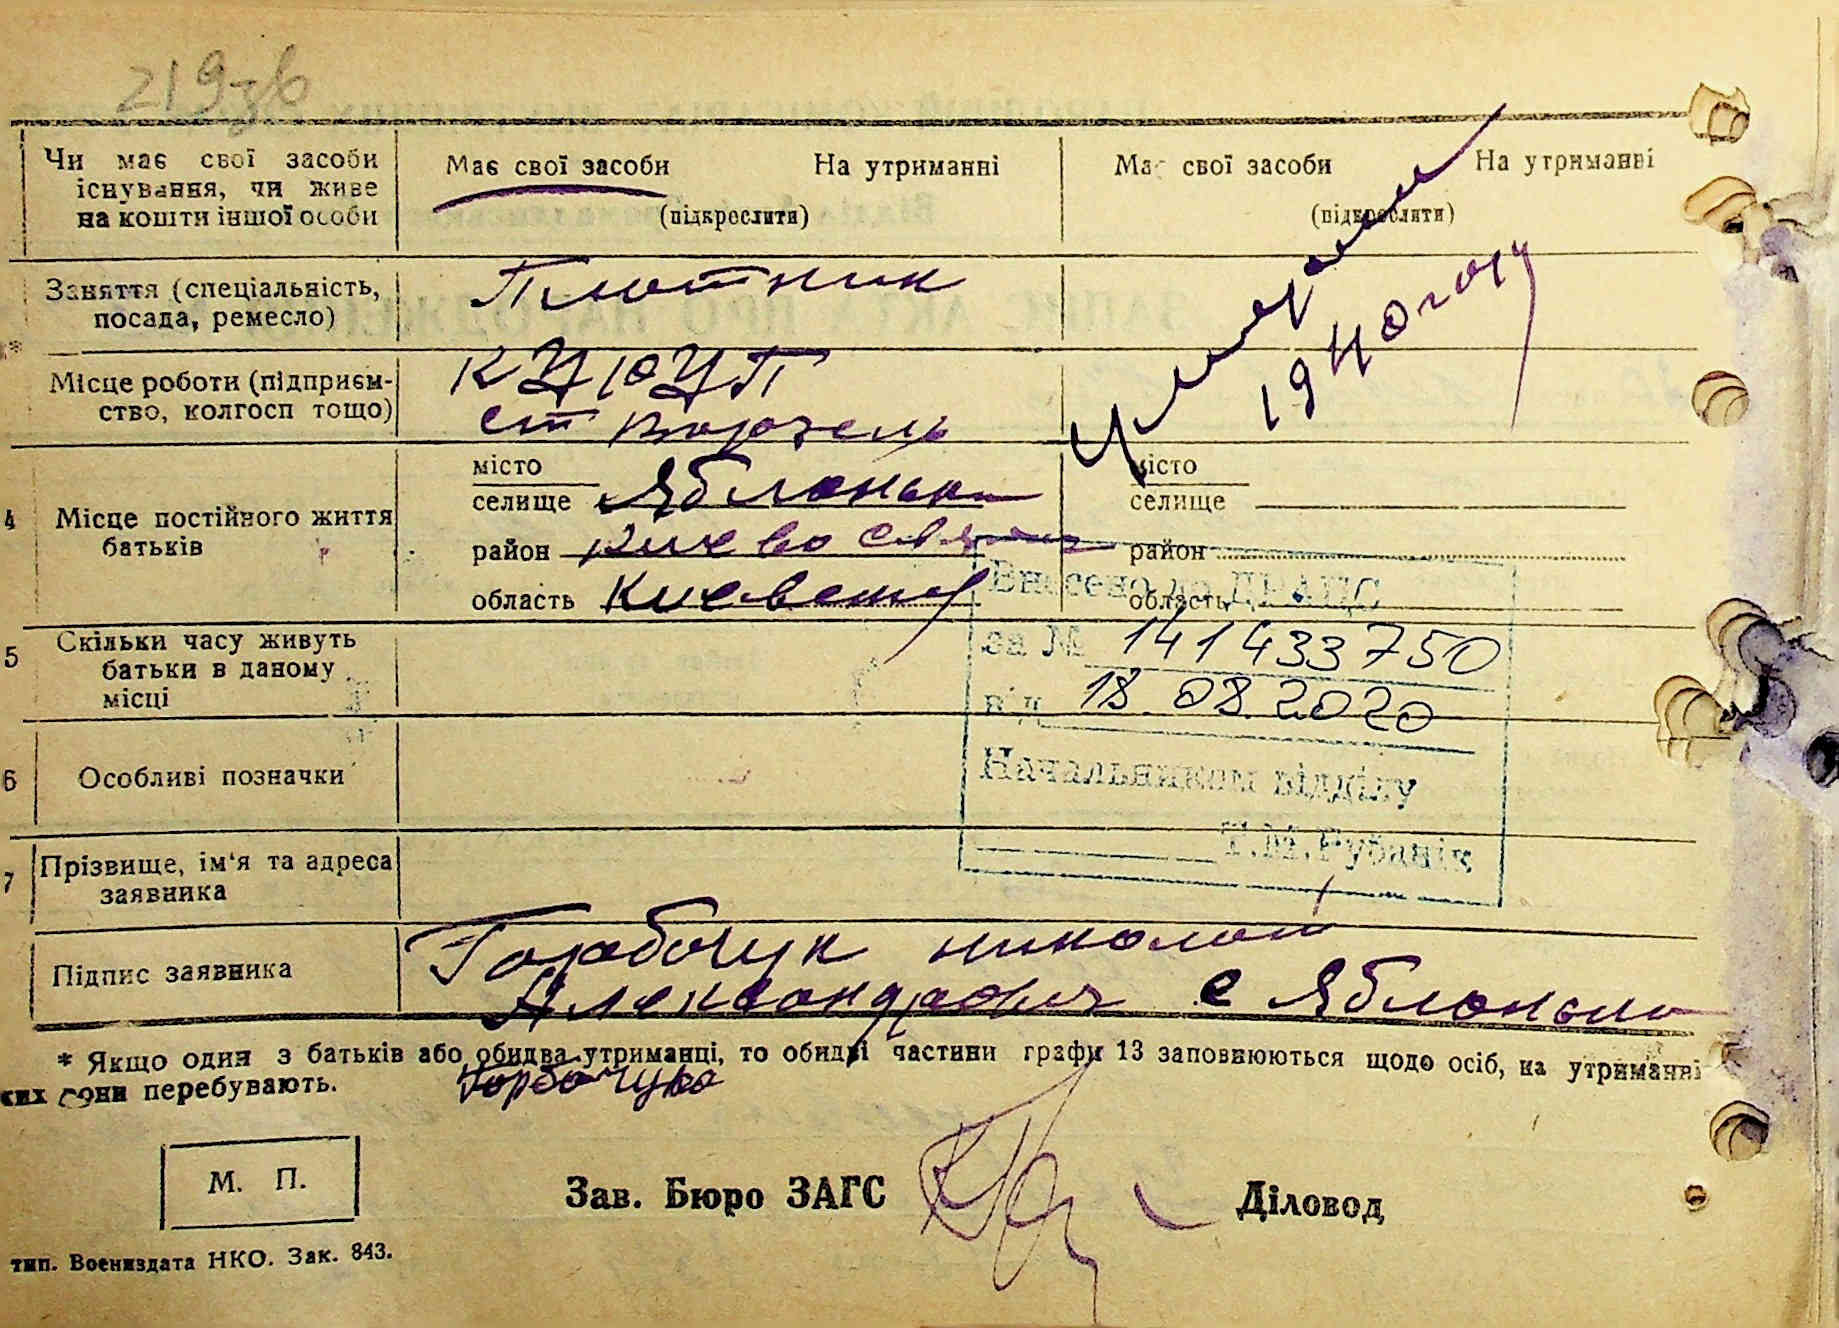 219зв
Чи має свої засоби існування, чи живе на кошти іншої особи
Має свої засоби На утриманні
(підкреслити)
Має свої засоби На утриманні
(підкреслити)
Заняття (спеціальність, посада, ремесло)
Плотник
Умерли
1940 году
* Місце роботи (підприємство, колгосп тощо)
ст Ворзель
4 Місце постійного життя батьків
місто
селище Яблонька
район Киево Святош
область Киевская
місто
селище
район
область
5 Скільки часу живуть батьки в даному місці
Внесено до ДРАЦС
за № 141433750
від 18.08.2020
Начальником відділу
Т.М.Рубанік
6 Особливі позначки
7 Прізвище, ім'я та адреса заявника
Підпис заявника
Горбачук николай
Александрович с Яблонька
* Якщо один з батьків або обидва утриманці, то обидві частини графи 13 заповнюються щодо осіб, на утриманні
яких вони перебувають.
Горбачука
М. П.
Зав. Бюро ЗАГС
Діловод
тип. Воениздата НКО. Зак. 843.